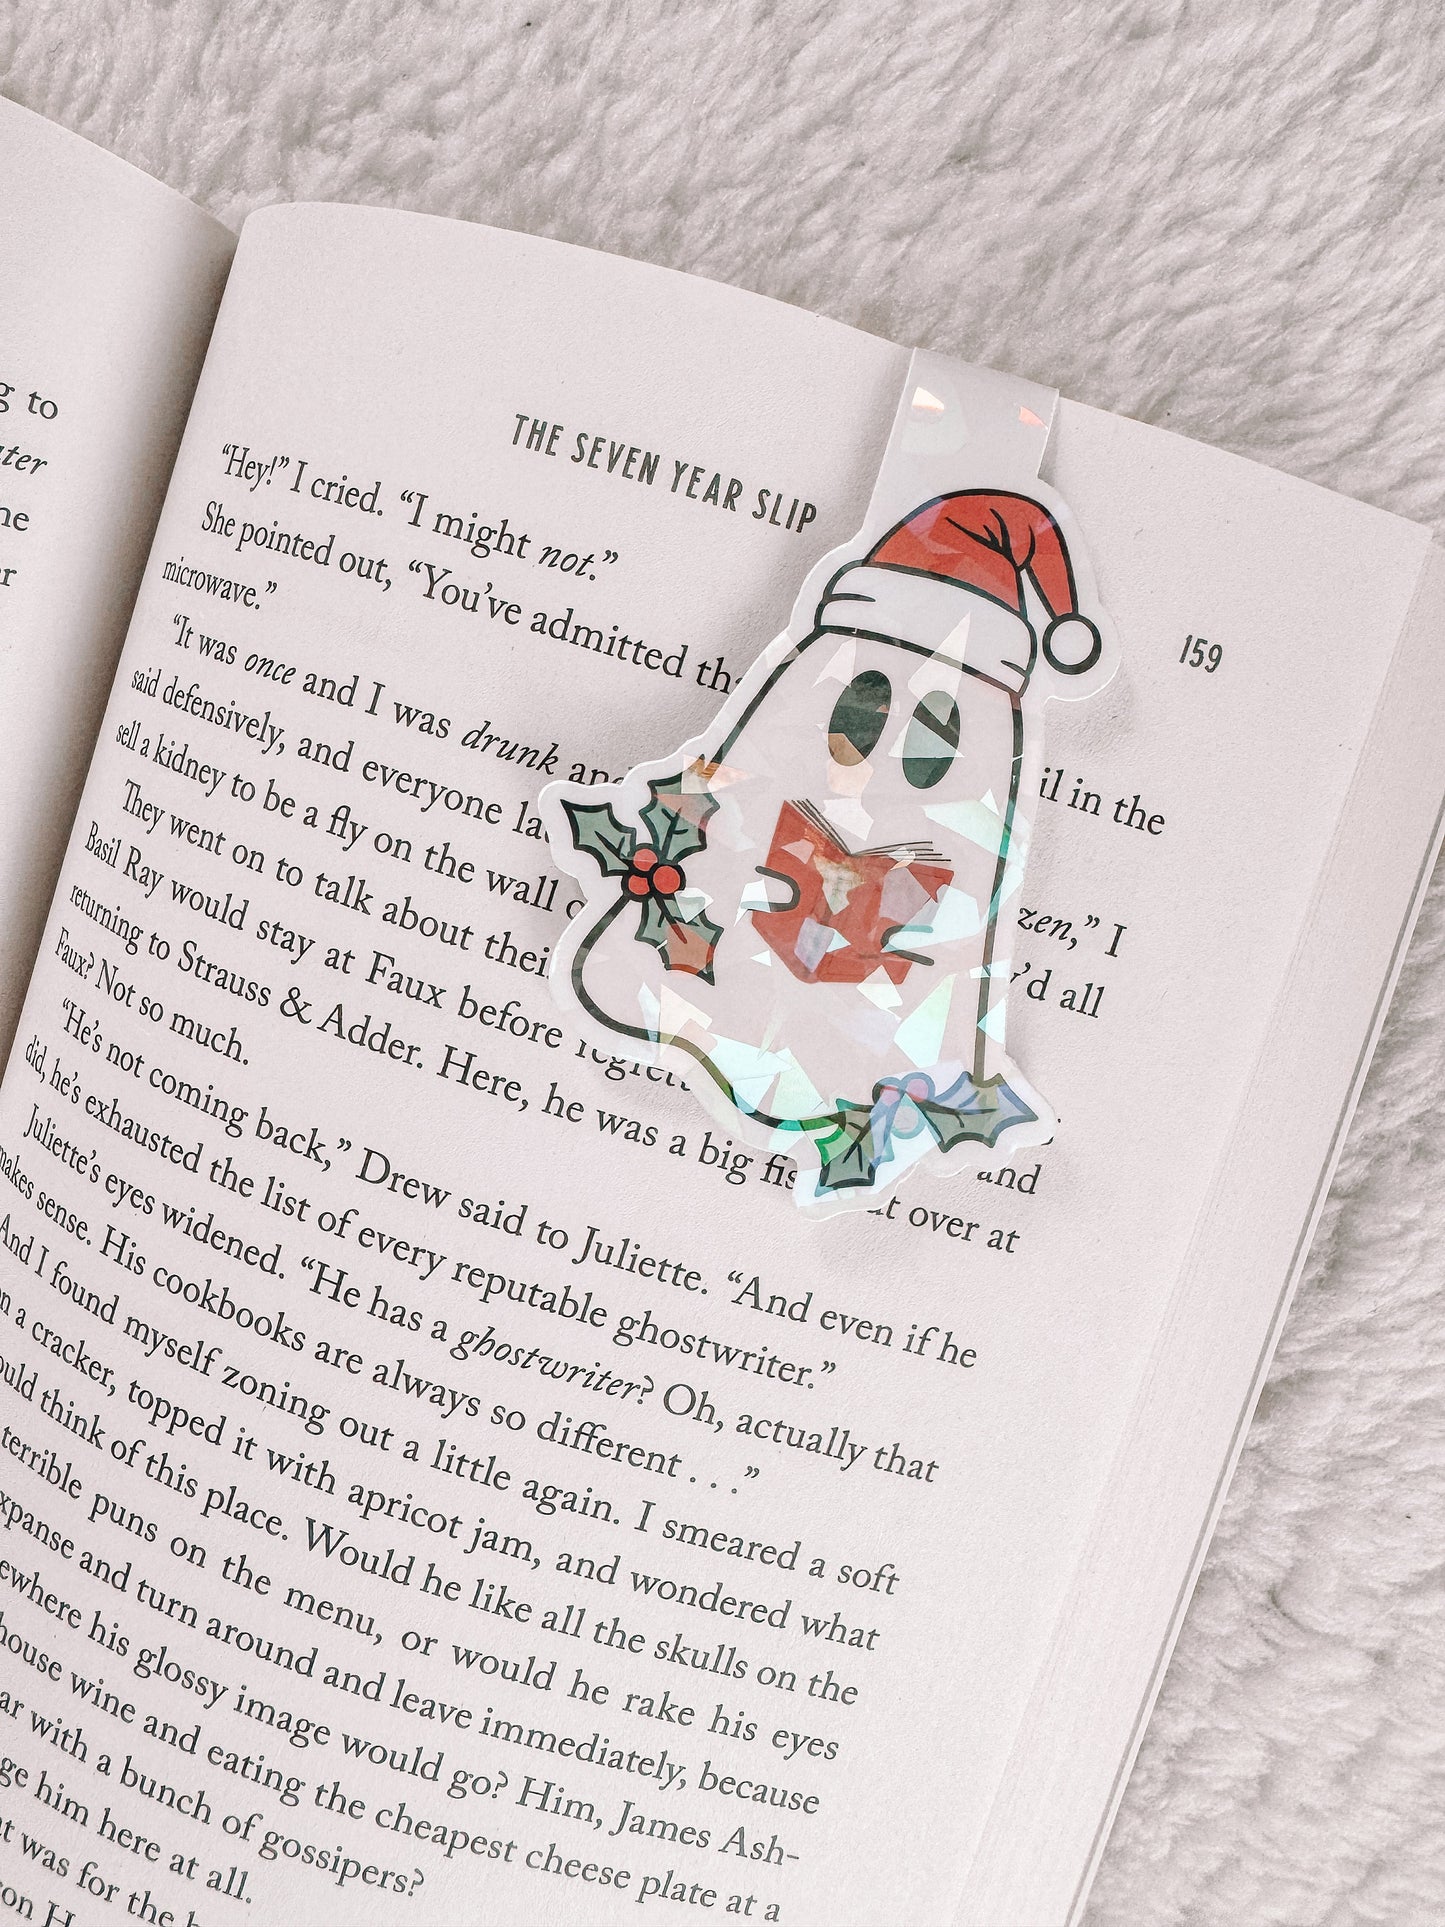 to
THE SEVEN YEAR SLIP
159
“Hey!” I cried. “I might not.”
She pointed out, “You’ve admitted in the
microwave.”
“It was once and I was drunk I
said defensively, and everyone all
sell a kidney to be a fly on the wall
They went on to talk about
Basil Ray would stay at Faux before and
returning to Strauss & Adder. Here, he was a big over at
Faux? Not so much.
“He’s not coming back,” Drew said to Juliette. “And even if he
did, he’s exhausted the list of every reputable ghostwriter.”
Juliette’s eyes widened. “He has a ghostwriter? Oh, actually that
makes sense. His cookbooks are always so different . . .”
And I found myself zoning out a little again. I smeared a soft
on a cracker, topped it with apricot jam, and wondered what
think of this place. Would he like all the skulls on the
terrible puns on the menu, or would he rake his eyes
and turn around and leave immediately, because
his glossy image would go? Him, James Ash-
house wine and eating the cheapest cheese plate at a
with a bunch of gossipers?
him here at all.
was for the